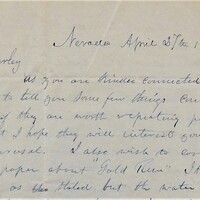 Nevada April 27th 1
rley
as you are kinder connected
to tell you some few things con
if they are worth repeating p
I hope they will interest you
perusal. I also wish to co
paper about "Gold Run" It
as stated, but the water